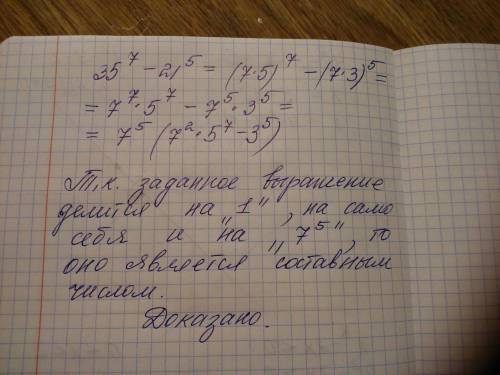 35⁷ - 21⁵ = (7·5)⁷ - (7·3)⁵ =
= 7⁷·5⁷ - 7⁵·3⁵ =
= 7⁵ (7²·5⁷ - 3⁵)
Т.к. заданное выражение
делится на „1", на само
себя и на „7⁵", то
оно является составным
числом.
Доказано.